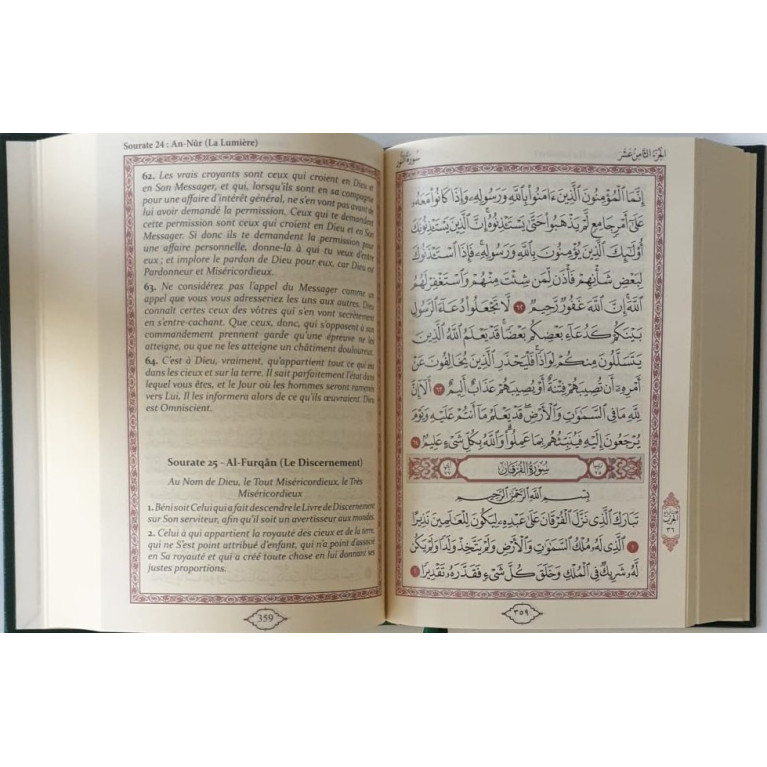 Sourate 24 : An-Nûr (La Lumière)
62. Les vrais croyants sont ceux qui croient en Dieu et
en Son Messager, et qui, lorsqu'ils sont en sa compagnie
pour une affaire d'intérêt général, ne s'en vont pas avant de
lui avoir demandé la permission. Ceux qui te demandent
cette permission sont ceux qui croient en Dieu et en Son
Messager. Si donc ils te demandent la permission pour
une affaire personnelle, donne-la à qui tu veux d'entre
eux ; et implore le pardon de Dieu pour eux, car Dieu est
Pardonneur et Miséricordieux.
63. Ne considérez pas l'appel du Messager comme un
appel que vous vous adresseriez les uns aux autres. Dieu
connaît certes ceux des vôtres qui s'en vont secrètement
en s'entre-cachant. Que ceux, donc, qui s'opposent à son
commandement prennent garde qu'une épreuve ne les
atteigne, ou que ne les atteigne un châtiment douloureux.
64. C'est à Dieu, vraiment, qu'appartient tout ce qui est
dans les cieux et sur la terre. Il sait parfaitement l'état dans
lequel vous êtes, et le Jour où les hommes seront ramenés
vers Lui, Il les informera alors de ce qu'ils œuvraient. Dieu
est Omniscient.
Sourate 25 - Al-Furqân (Le Discernement)
Au Nom de Dieu, le Tout Miséricordieux, le Très
Miséricordieux
1. Béni soit Celui qui a fait descendre le Livre de Discernement
sur Son serviteur, afin qu'il soit un avertisseur aux mondes.
2. Celui à qui appartient la royauté des cieux et de la terre,
qui ne S'est point attribué d'enfant, qui n'a point d'associé
en Sa royauté et qui a créé toute chose en lui donnant ses
justes proportions.
359
سُورَةُ النُّورِ
الجُزْءُ الثَّامِنَ عَشَرَ
إِنَّمَا ٱلْمُؤْمِنُونَ ٱلَّذِينَ ءَامَنُوا۟ بِٱللَّهِ وَرَسُولِهِۦ وَإِذَا كَانُوا۟ مَعَهُۥ
عَلَىٰٓ أَمْرٍ جَامِعٍ لَّمْ يَذْهَبُوا۟ حَتَّىٰ يَسْتَـْٔذِنُوهُ إِنَّ ٱلَّذِينَ يَسْتَـْٔذِنُونَكَ
أُو۟لَـٰٓئِكَ ٱلَّذِينَ يُؤْمِنُونَ بِٱللَّهِ وَرَسُولِهِۦ فَإِذَا ٱسْتَـْٔذَنُوكَ
لِبَعْضِ شَأْنِهِمْ فَأْذَن لِّمَن شِئْتَ مِنْهُمْ وَٱسْتَغْفِرْ لَهُمُ
ٱللَّهَ إِنَّ ٱللَّهَ غَفُورٌ رَّحِيمٌ ٦٢ لَّا تَجْعَلُوا۟ دُعَآءَ ٱلرَّسُولِ
بَيْنَكُمْ كَدُعَآءِ بَعْضِكُم بَعْضًا قَدْ يَعْلَمُ ٱللَّهُ ٱلَّذِينَ
يَتَسَلَّلُونَ مِنكُمْ لِوَاذًا فَلْيَحْذَرِ ٱلَّذِينَ يُخَالِفُونَ عَنْ
أَمْرِهِۦٓ أَن تُصِيبَهُمْ فِتْنَةٌ أَوْ يُصِيبَهُمْ عَذَابٌ أَلِيمٌ ٦٣ أَلَآ إِنَّ
لِلَّهِ مَا فِى ٱلسَّمَـٰوَٰتِ وَٱلْأَرْضِ قَدْ يَعْلَمُ مَآ أَنتُمْ عَلَيْهِ وَيَوْمَ
يُرْجَعُونَ إِلَيْهِ فَيُنَبِّئُهُم بِمَا عَمِلُوا۟ وَٱللَّهُ بِكُلِّ شَىْءٍ عَلِيمٌ ٦٤
سُورَةُ الفُرْقَانِ
بِسْمِ ٱللَّهِ ٱلرَّحْمَـٰنِ ٱلرَّحِيمِ
تَبَارَكَ ٱلَّذِى نَزَّلَ ٱلْفُرْقَانَ عَلَىٰ عَبْدِهِۦ لِيَكُونَ لِلْعَـٰلَمِينَ نَذِيرًا
١ ٱلَّذِى لَهُۥ مُلْكُ ٱلسَّمَـٰوَٰتِ وَٱلْأَرْضِ وَلَمْ يَتَّخِذْ وَلَدًا وَلَمْ يَكُن
لَّهُۥ شَرِيكٌ فِى ٱلْمُلْكِ وَخَلَقَ كُلَّ شَىْءٍ فَقَدَّرَهُۥ تَقْدِيرًا ٢
الحزب
٣٦
٣٥٩